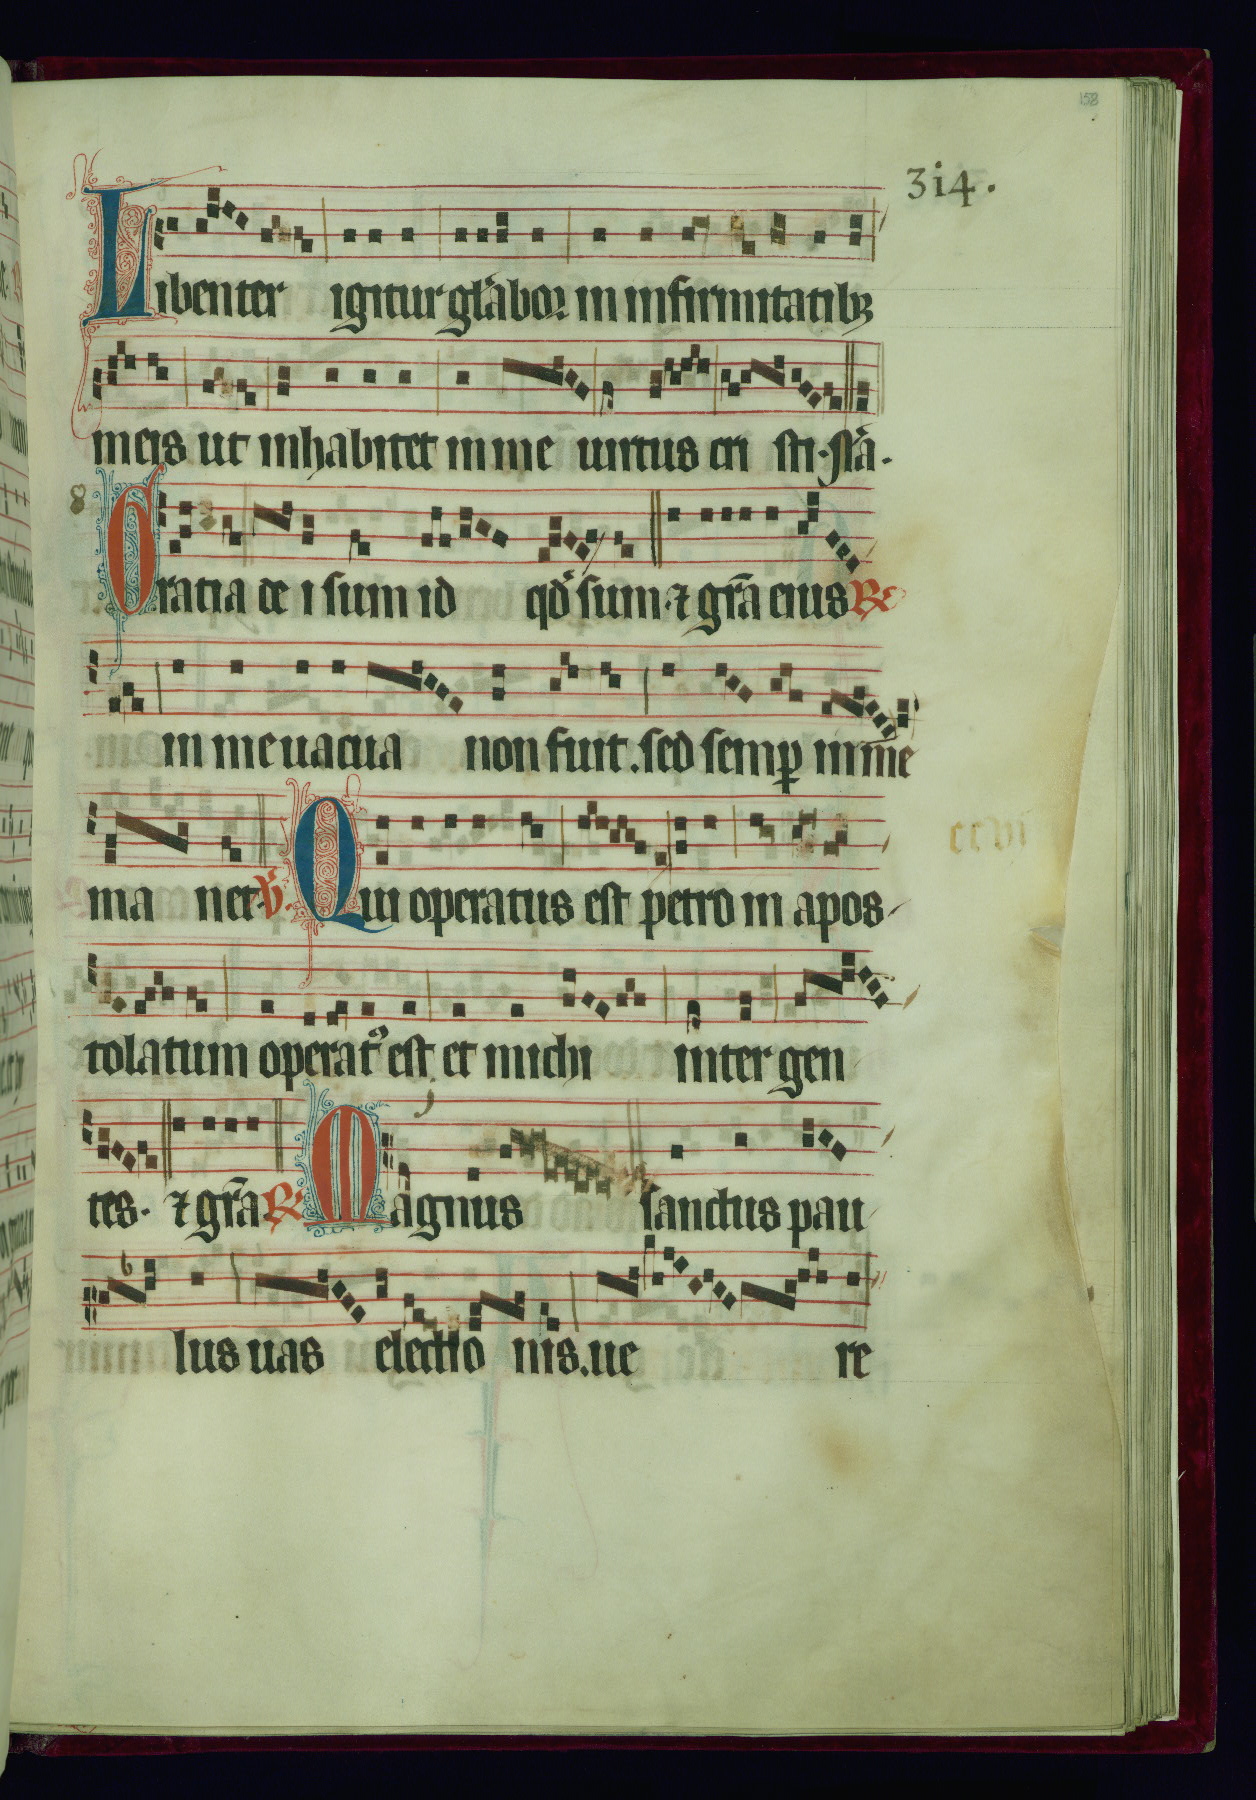 158
314.
Libenter igitur gła᷒boꝛ in infirmitatibꝫ
meis ut inhabitet in me uirtus cri sti.
8
Gratia de i sum id qd᷒ sum. ⁊ gr̄a eius ℟
in me uacua non fuit. sed semꝑ in me
ma net. ℣. Qui operatus est petro in apos
tolatum operat᷒ est et michi inter gen
tes. ⁊ gr̄a ℟ Magnus sanctus pau
lus uas electio nis. ue re
ccvi